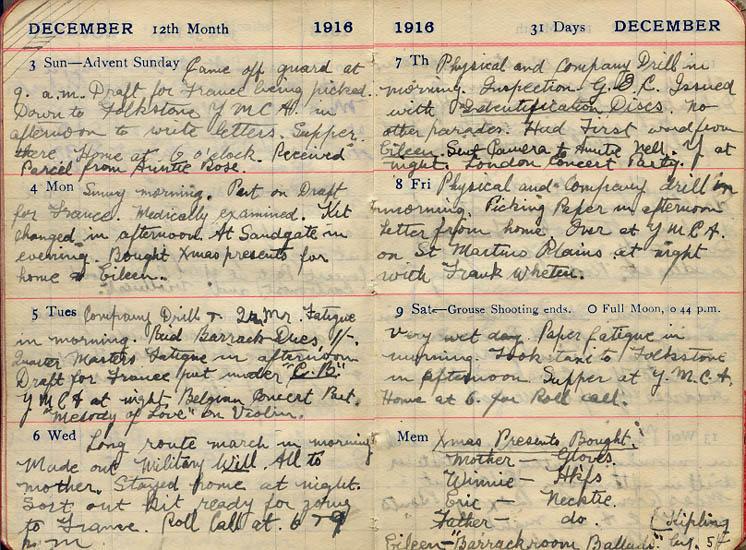 DECEMBER 12th Month 1916
3 Sun—Advent Sunday Came off guard at
9. a.m. Draft for France being picked.
Down to Folkstone Y M C A. in
afternoon to write letters. Supper
there Home at 6 o'clock. Received
Parcel from Auntie Rose.
4 Mon Sunny morning. Put on Draft
for France. Medically examined. Kit
changed in afternoon. At Sandgate in
evening. Bought Xmas presents for
home & Eileen.
5 Tues Company Drill & Mr. Fatigue
in morning. Paid Barrack Dues, 1/-.
Quarter Masters Fatigue in afternoon
Draft for France put under "C.B."
Y M C A at night Belgian Concert Part.
"Melody of Love" on Violin.
6 Wed Long route march in morning
Made out Military Will. All to
mother. Stayed home at night.
Sort out Kit ready for going
to France. Roll Call at 6 & 9
p.m.
1916 31 Days DECEMBER
7 Th Physical and Company Drill in
morning. Inspection G.O.C. Issued
with Identification Discs. no
other parades. Had First word from
Eileen. Sent Camera to Auntie Nell. Y at
night. London Concert Party.
8 Fri Physical and Company drill in
morning. Picking Paper in afternoon
Letter from home. Over at Y M C A.
on St Martins Plains at night
with Frank
9 Sat—Grouse Shooting ends. O Full Moon, 0 44 p.m.
Very wet day. Paper fatigue in
morning. Took to Folkstone
in afternoon. Supper at Y. M. C. A.
Home at 6. for Roll call.
Mem Xmas Presents Bought.
Mother — Gloves.
Winnie — Hkfs
Eric — Necktie.
Father — do. (Kipling
Eileen — "Barrackroom Ballads"